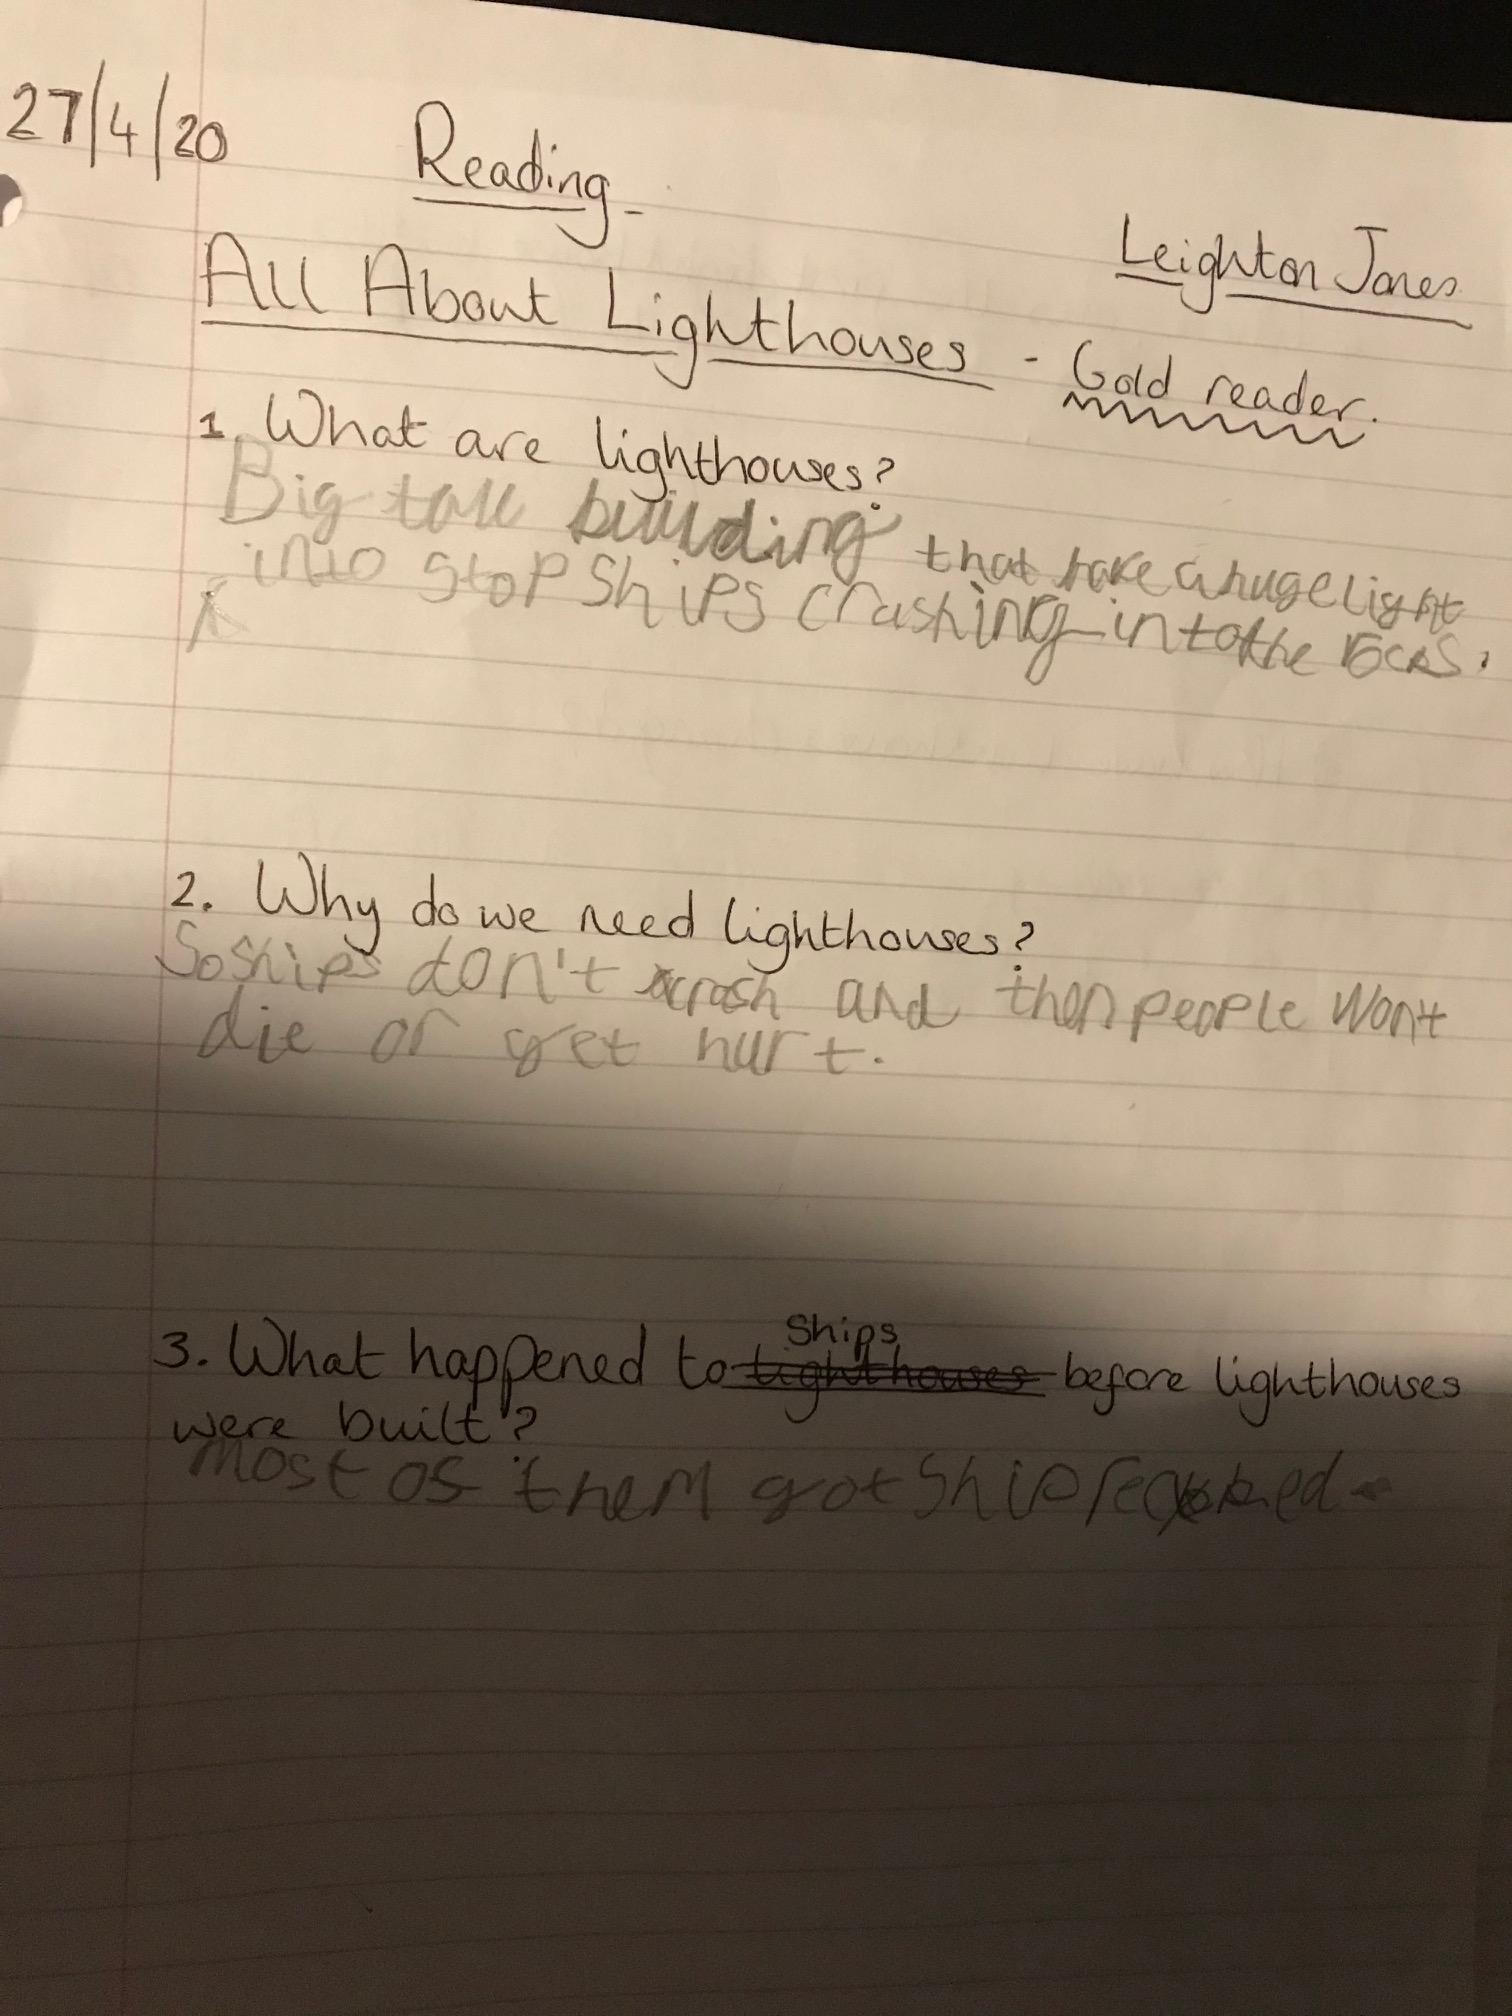 27/4/20 Reading - Leighton Jones
All About Lighthouses - Gold reader.
1. What are lighthouses?
Big tall building that have a huge light
into stop ships crashing into the rocks.
2. Why do we need lighthouses?
So ships don't crash and then people won't
die or get hurt.
3. What happened to lighthouses Ships before lighthouses
were built?
most of them got